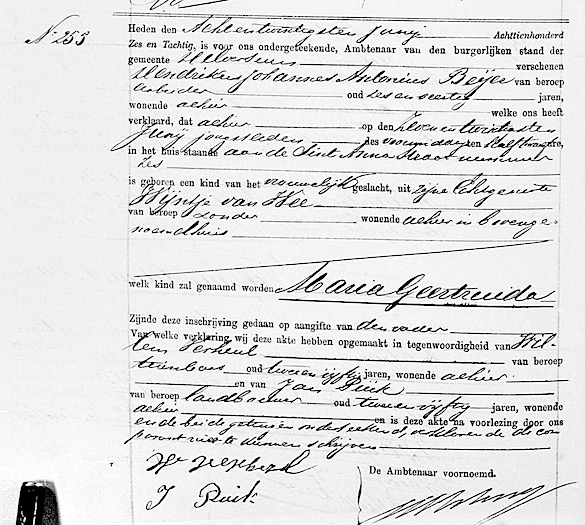 Nº 255
Heden den Achtentwintigsten Junij Achttienhonderd
Zes en Tachtig, is voor ons ondergeteekende, Ambtenaar van den burgerlijken stand der
gemeente Hilversum verschenen
Hendrikus Johannes Antonius Beijer van beroep
arbeider oud zes en veertig jaren,
wonende alhier welke ons heeft
verklaard, dat alhier op den Zeven en twintigsten
Junij jongstleden des voormiddags ten half twee ure,
in het huis staande aan de Sint Anna straat nummer
zes
is geboren een kind van het vrouwelijk geslacht, uit zijne Echtgenoote
Wijntje van Wee
van beroep zonder wonende alhier in bovenge-
noemd huis
welk kind zal genaamd worden Maria Geertruida
Zijnde deze inschrijving gedaan op aangifte van den vader
Van welke verklaring wij deze akte hebben opgemaakt in tegenwoordigheid van Wil-
lem Verheul van beroep
oud twee en vijftig jaren, wonende alhier
en van Jan Puik
van beroep landbouwer oud twee en vijftig jaren, wonende
alhier en is deze akte na voorlezing door ons
en de beide getuigen onderteekend, verklarende de com-
parant niet te kunnen schrijven
De Ambtenaar voornoemd.
J Puik